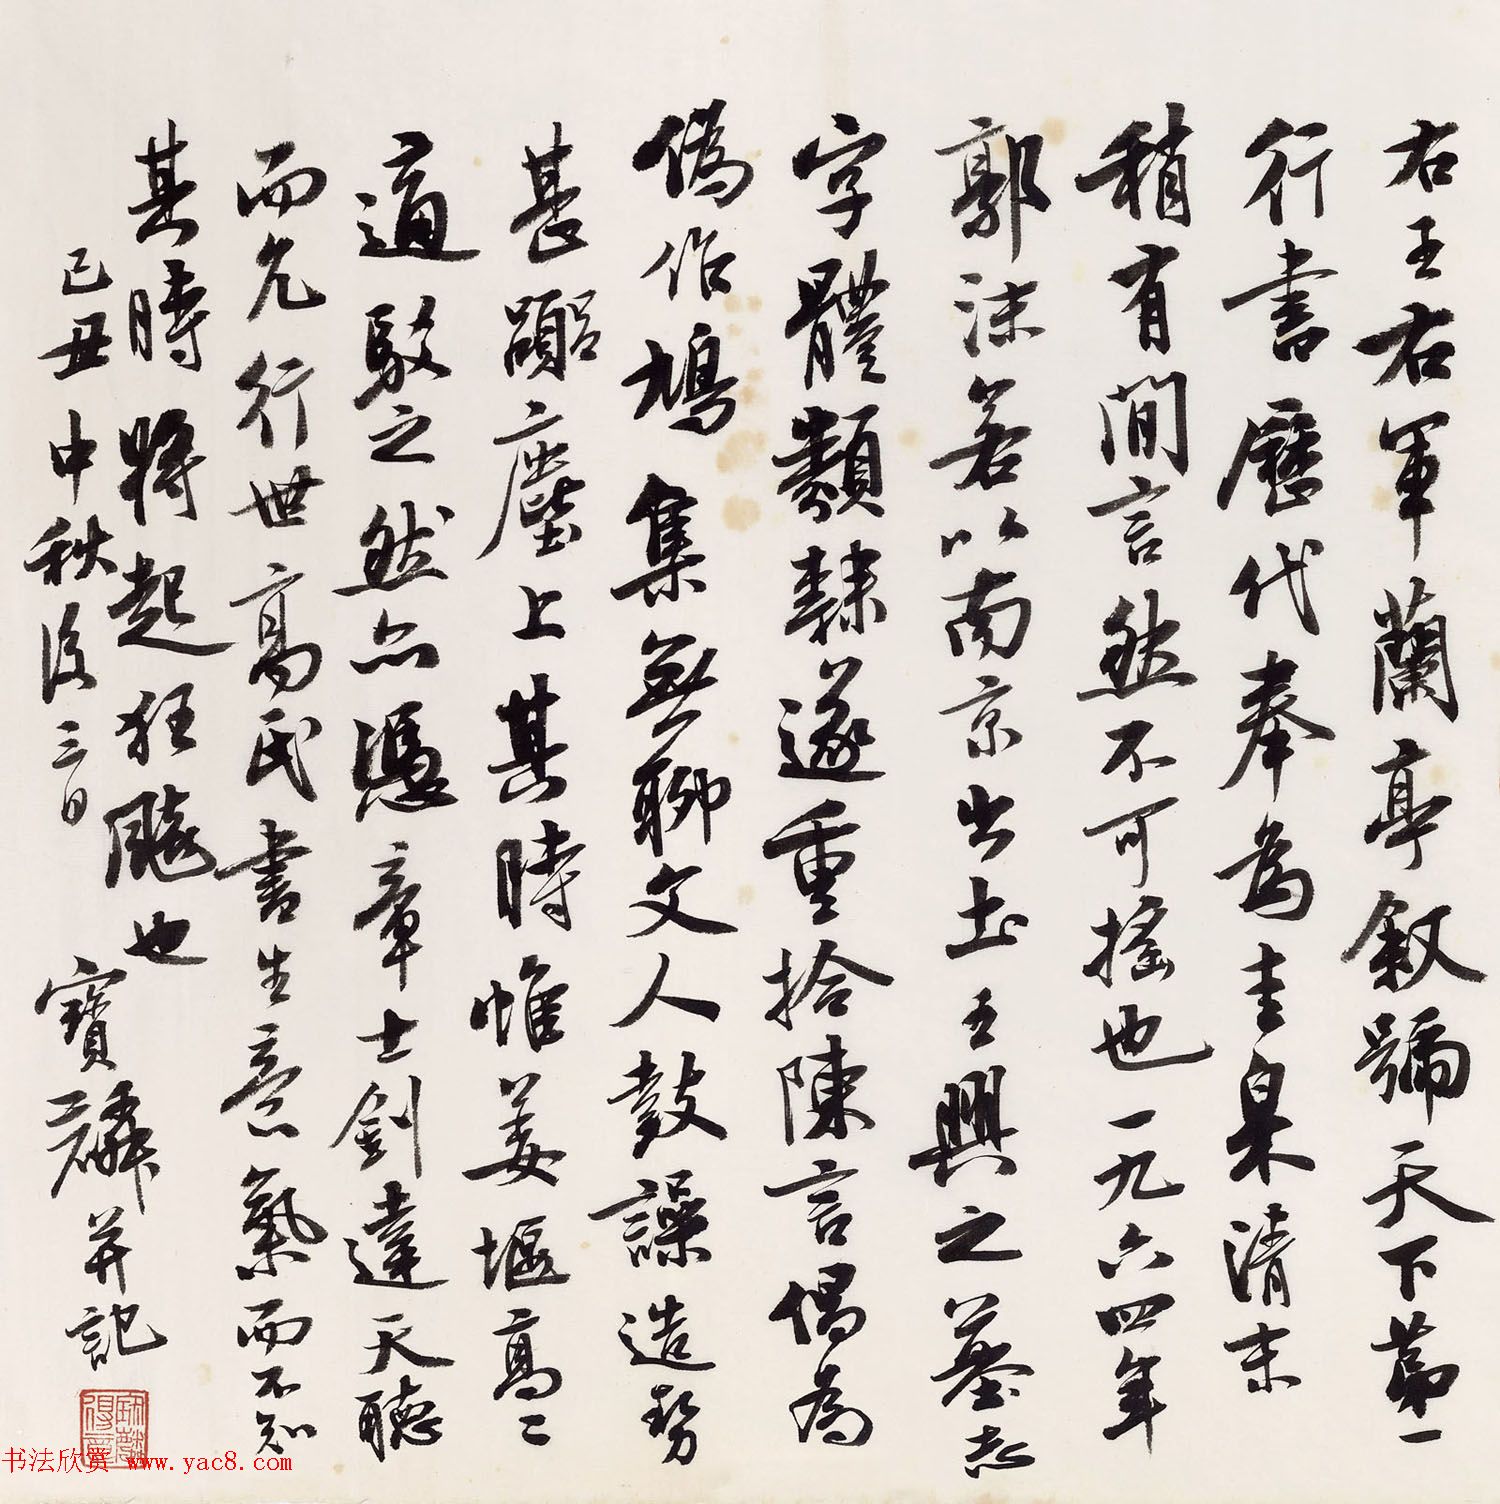 右王右軍蘭亭叙號天下第一
行書歷代奉為圭臬清末
稍有間言然不可搖也一九六四年
郭沫若以南京出土王興之墓志
字體類隸遂重拾陳言倡為
偽作鳩集無聊文人鼓譟造勢
甚囂塵上其時惟姜堰高二
適駁之然亦憑章士釗達天聽
而允行世高氏書生意氣而不知
其時將起狂飈也
己丑中秋後三日
寶麟并記
书法欣赏 www.yac8.com